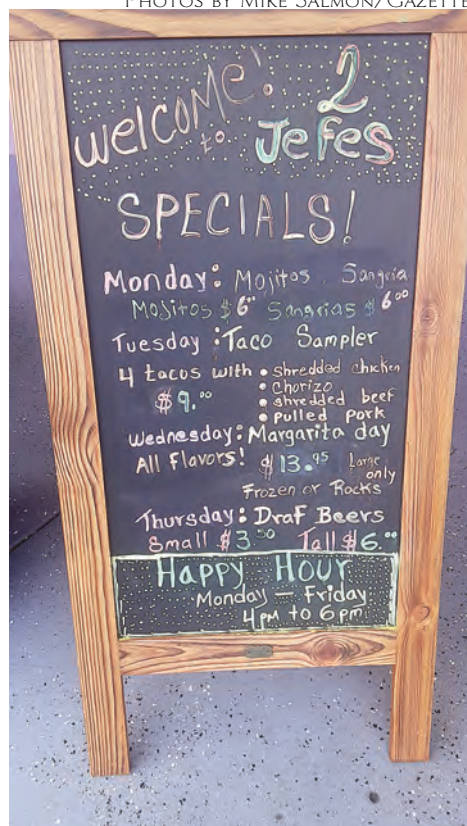 PHOTOS BY MIKE SALMON/GAZETTE
WELCOME! 2
to Jefes
SPECIALS!
Monday: Mojitos, Sangria
Mojitos $6.00 Sangrias $6.00
Tuesday: Taco Sampler
4 tacos with • shredded chicken
• Chorizo
$9.00 • shredded beef
• pulled pork
Wednesday: Margarita day
All Flavors! $13.95 Large
only
Frozen or Rocks
Thursday: Draf Beers
Small $3.50 Tall $6.00
Happy Hour
Monday — Friday
4PM to 6PM